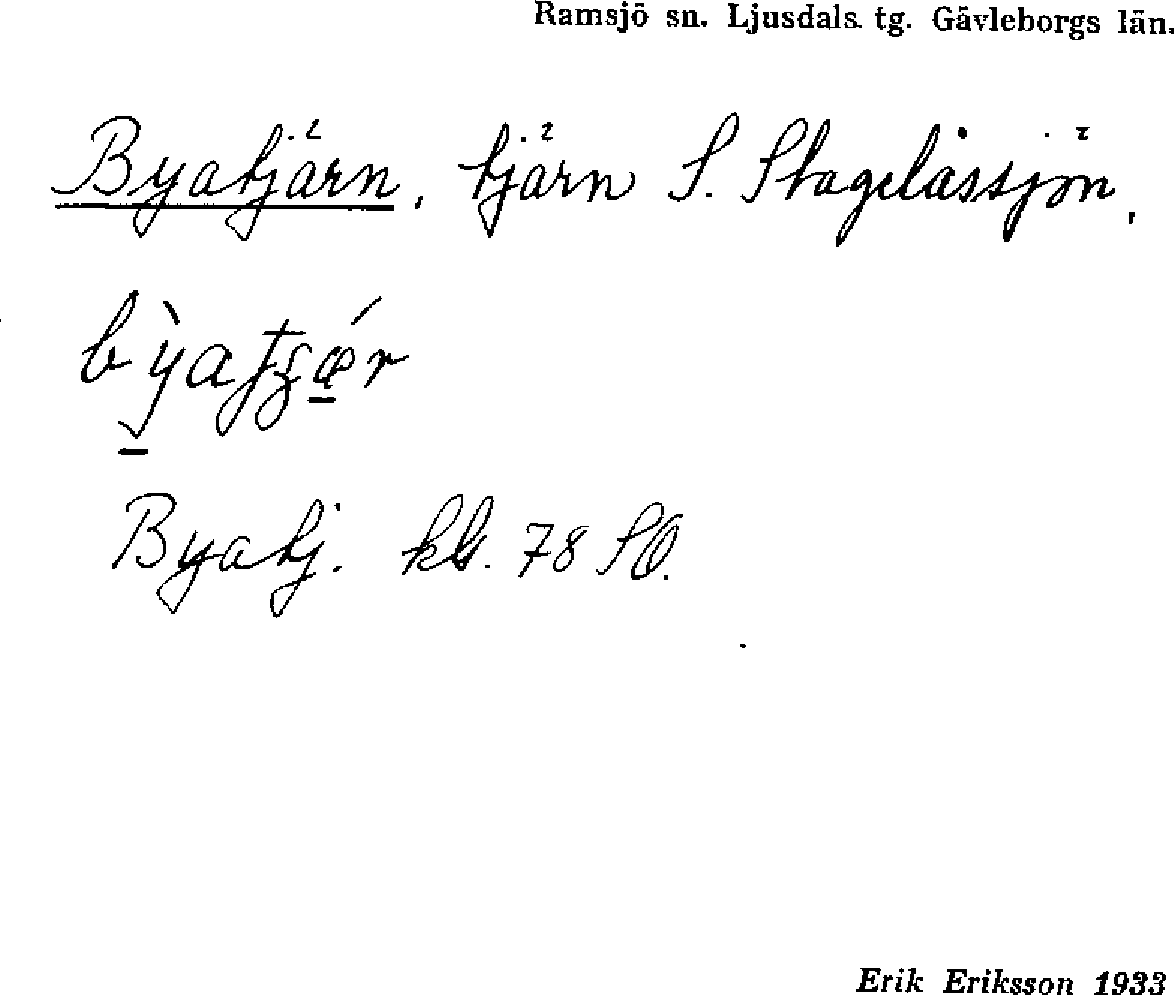 Ramsjö sn. Ljusdals tg. Gävleborgs län.
Byatjärn, tjärn S. Stagelåssjön,
Byatj. kb. 78 SO.
Erik Eriksson 1933